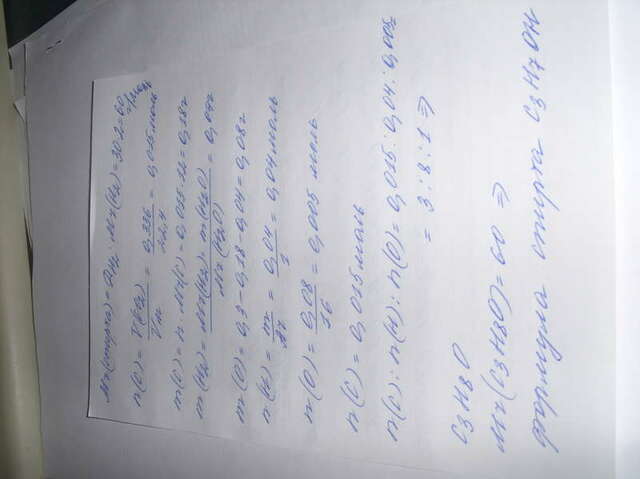 Mr(спирта) = DH₂ · Mr(H₂) = 30·2 = 60 г/моль
n(C) = V(CO₂)/Vm = 0,336/22,4 = 0,015 моль
m(C) = n · Mr(C) = 0,015·12 = 0,18г
m(H₂) = Mr(H₂) · m(H₂O)/Mr(H₂O) = 0,04г
m(O) = 0,3-0,18-0,04 = 0,08г
n(H) = m/M = 0,04/1 = 0,04 моль
n(O) = 0,08/16 = 0,005 моль
n(C) = 0,015 моль
n(C) : n(H) : n(O) = 0,015 : 0,04 : 0,005
= 3 : 8 : 1 ⇒
C₃H₈O
Mr(C₃H₈O) = 60 ⇒
формула спирта C₃H₇OH